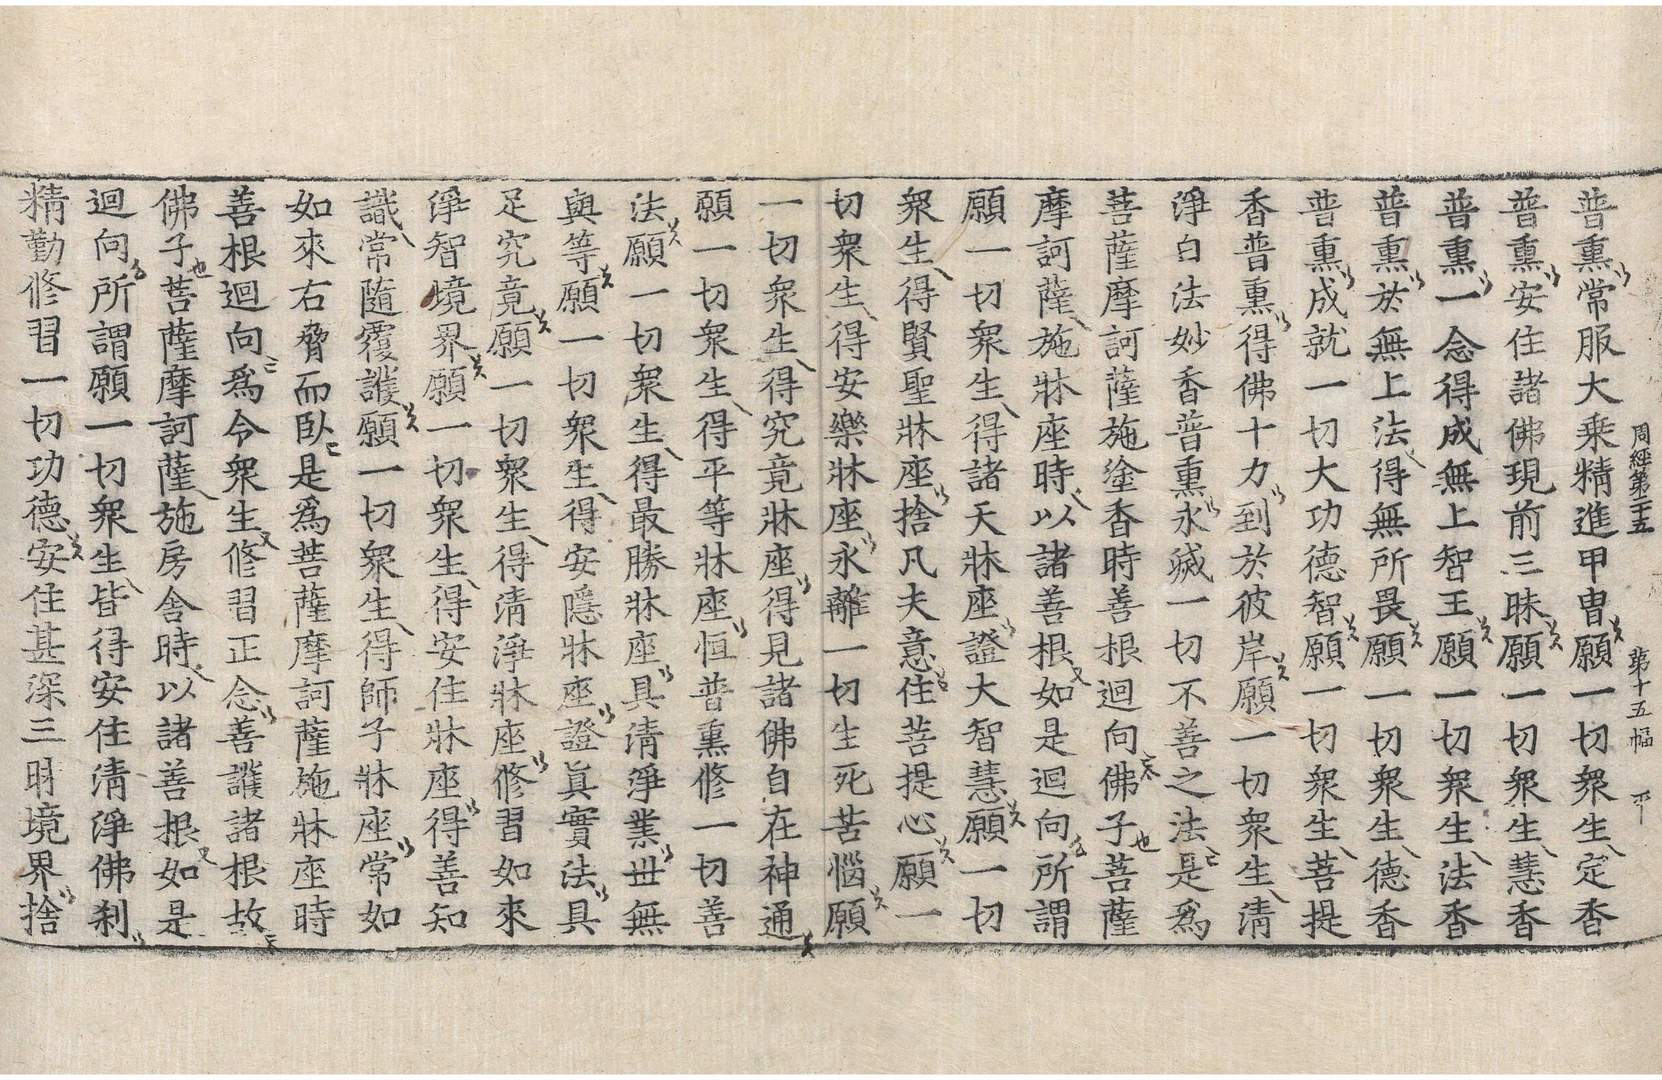 周經第二十五 第十五幅 平
普熏常服大乗精進甲冑願一切衆生定香
普熏安住諸佛現前三昧願一切衆生慧香
普熏一念得成無上智王願一切衆生法香
普熏於無上法得無所畏願一切衆生德香
普熏成就一切大功德智願一切衆生菩提
香普熏得佛十力到於彼岸願一切衆生清
淨白法妙香普熏永滅一切不善之法是爲
菩薩摩訶薩施塗香時善根迴向佛子菩薩
摩訶薩施牀座時以諸善根如是迴向所謂
願一切衆生得諸天牀座證大智慧願一切
衆生得賢聖牀座捨凡夫意住菩提心願一
切衆生得安樂牀座永離一切生死苦惱願
一切衆生得究竟牀座得見諸佛自在神通
願一切衆生得平等牀座恒普熏修一切善
法願一切衆生得最勝牀座具清淨業世無
與等願一切衆生得安隱牀座證眞實法具
足究竟願一切衆生得清淨牀座修習如來
淨智境界願一切衆生得安住牀座得善知
識常隨覆護願一切衆生得師子牀座常如
如來右脅而臥是爲菩薩摩訶薩施牀座時
善根迴向爲令衆生修習正念善護諸根故
佛子菩薩摩訶薩施房舍時以諸善根如是
迴向所謂願一切衆生皆得安住清淨佛刹
精勤修習一切功德安住甚深三昧境界捨